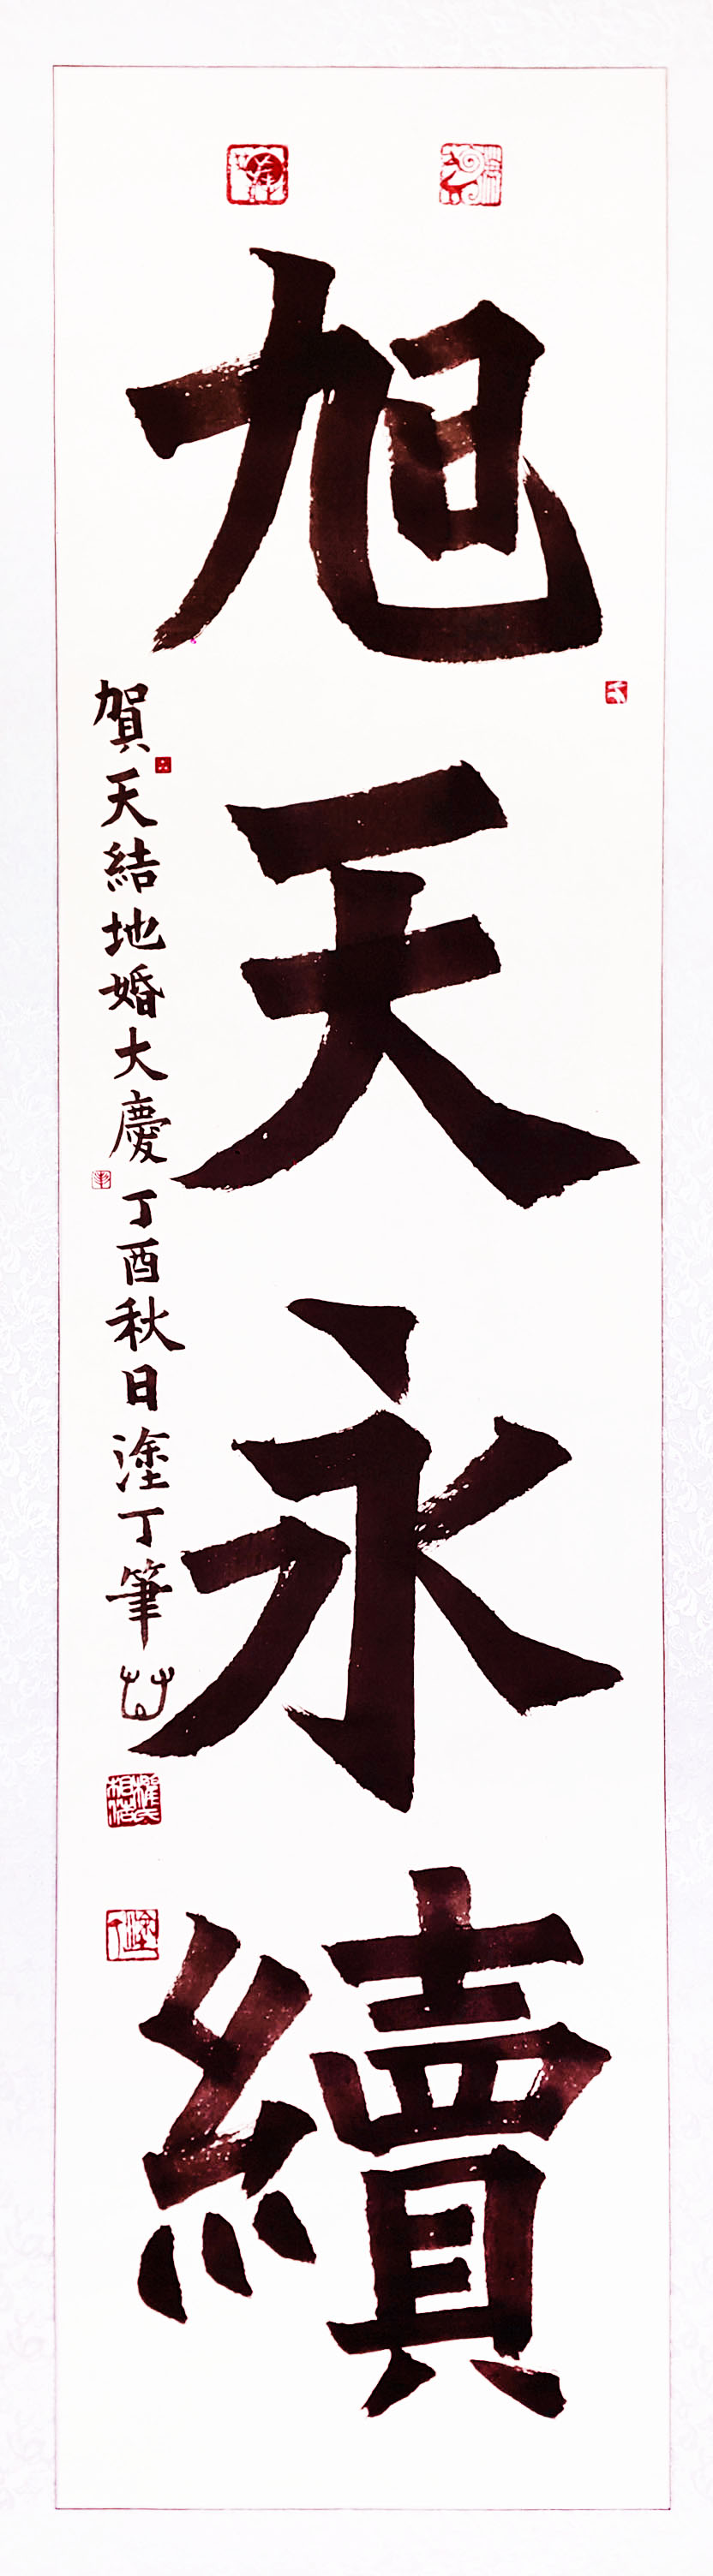 旭天永續
賀天結地婚大慶丁酉秋日塗丁筆